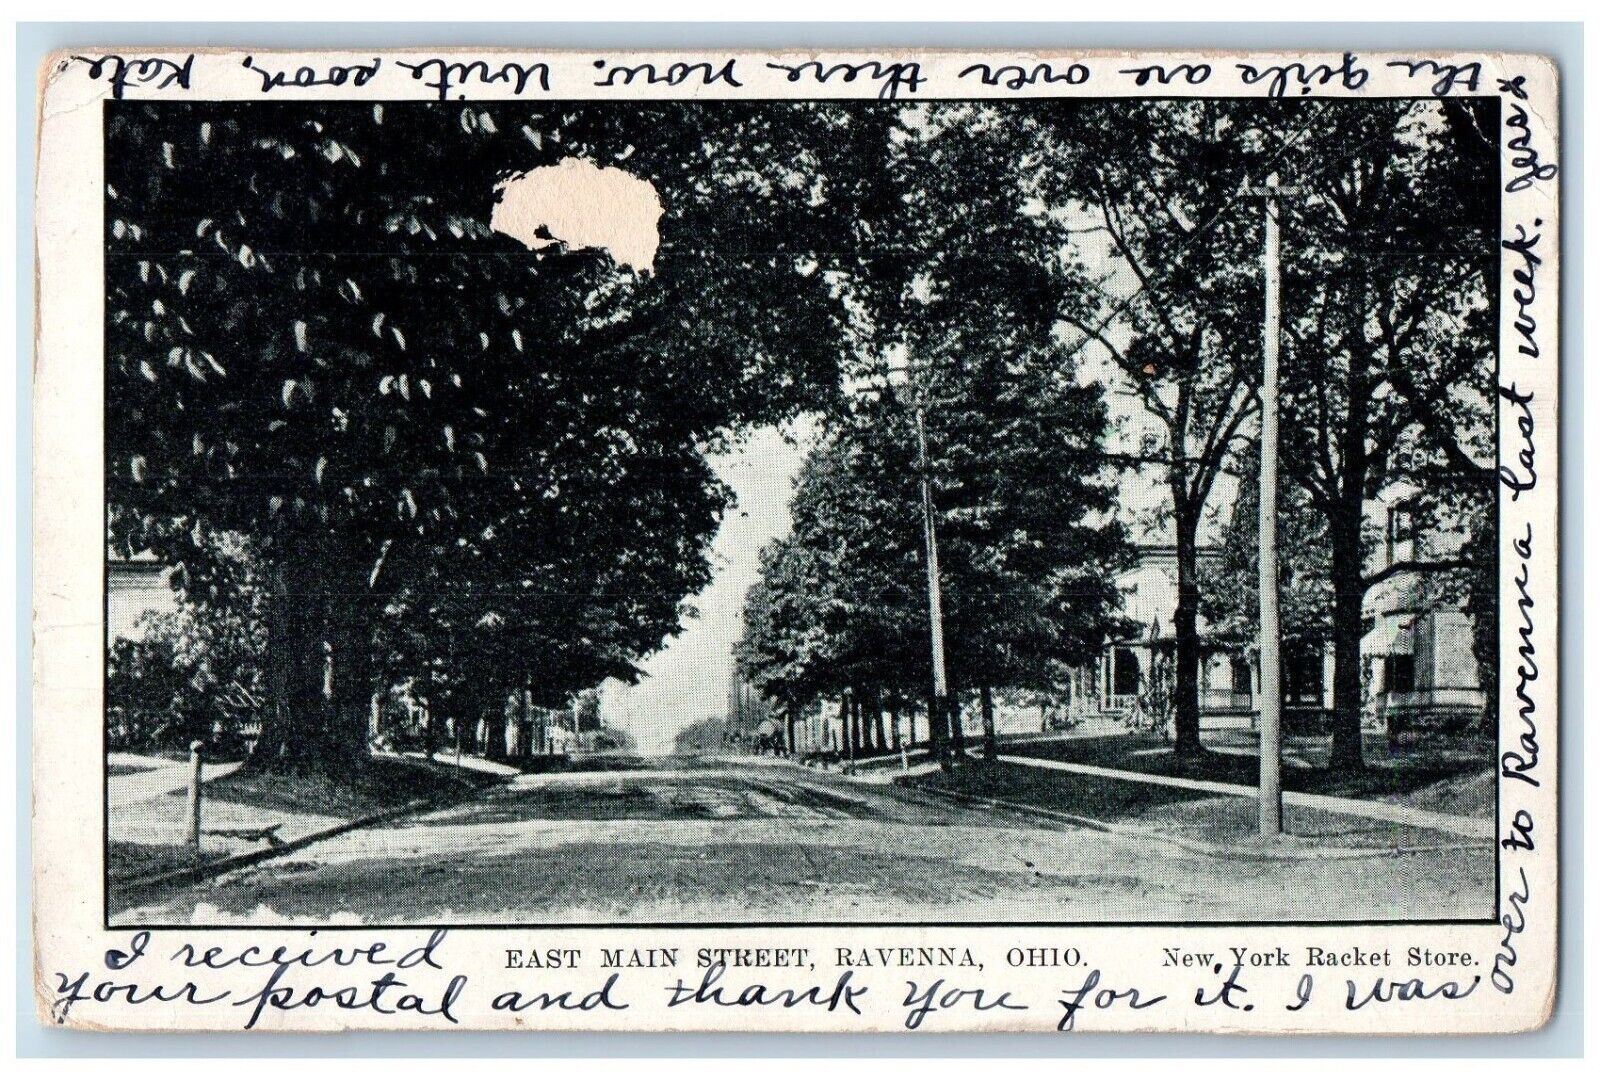 EAST MAIN STREET, RAVENNA, OHIO.
New York Racket Store.
I received
your postal and thank you for it. I was
over to Ravenna last week. Jess &
the girls are over there now. Write soon, Kate